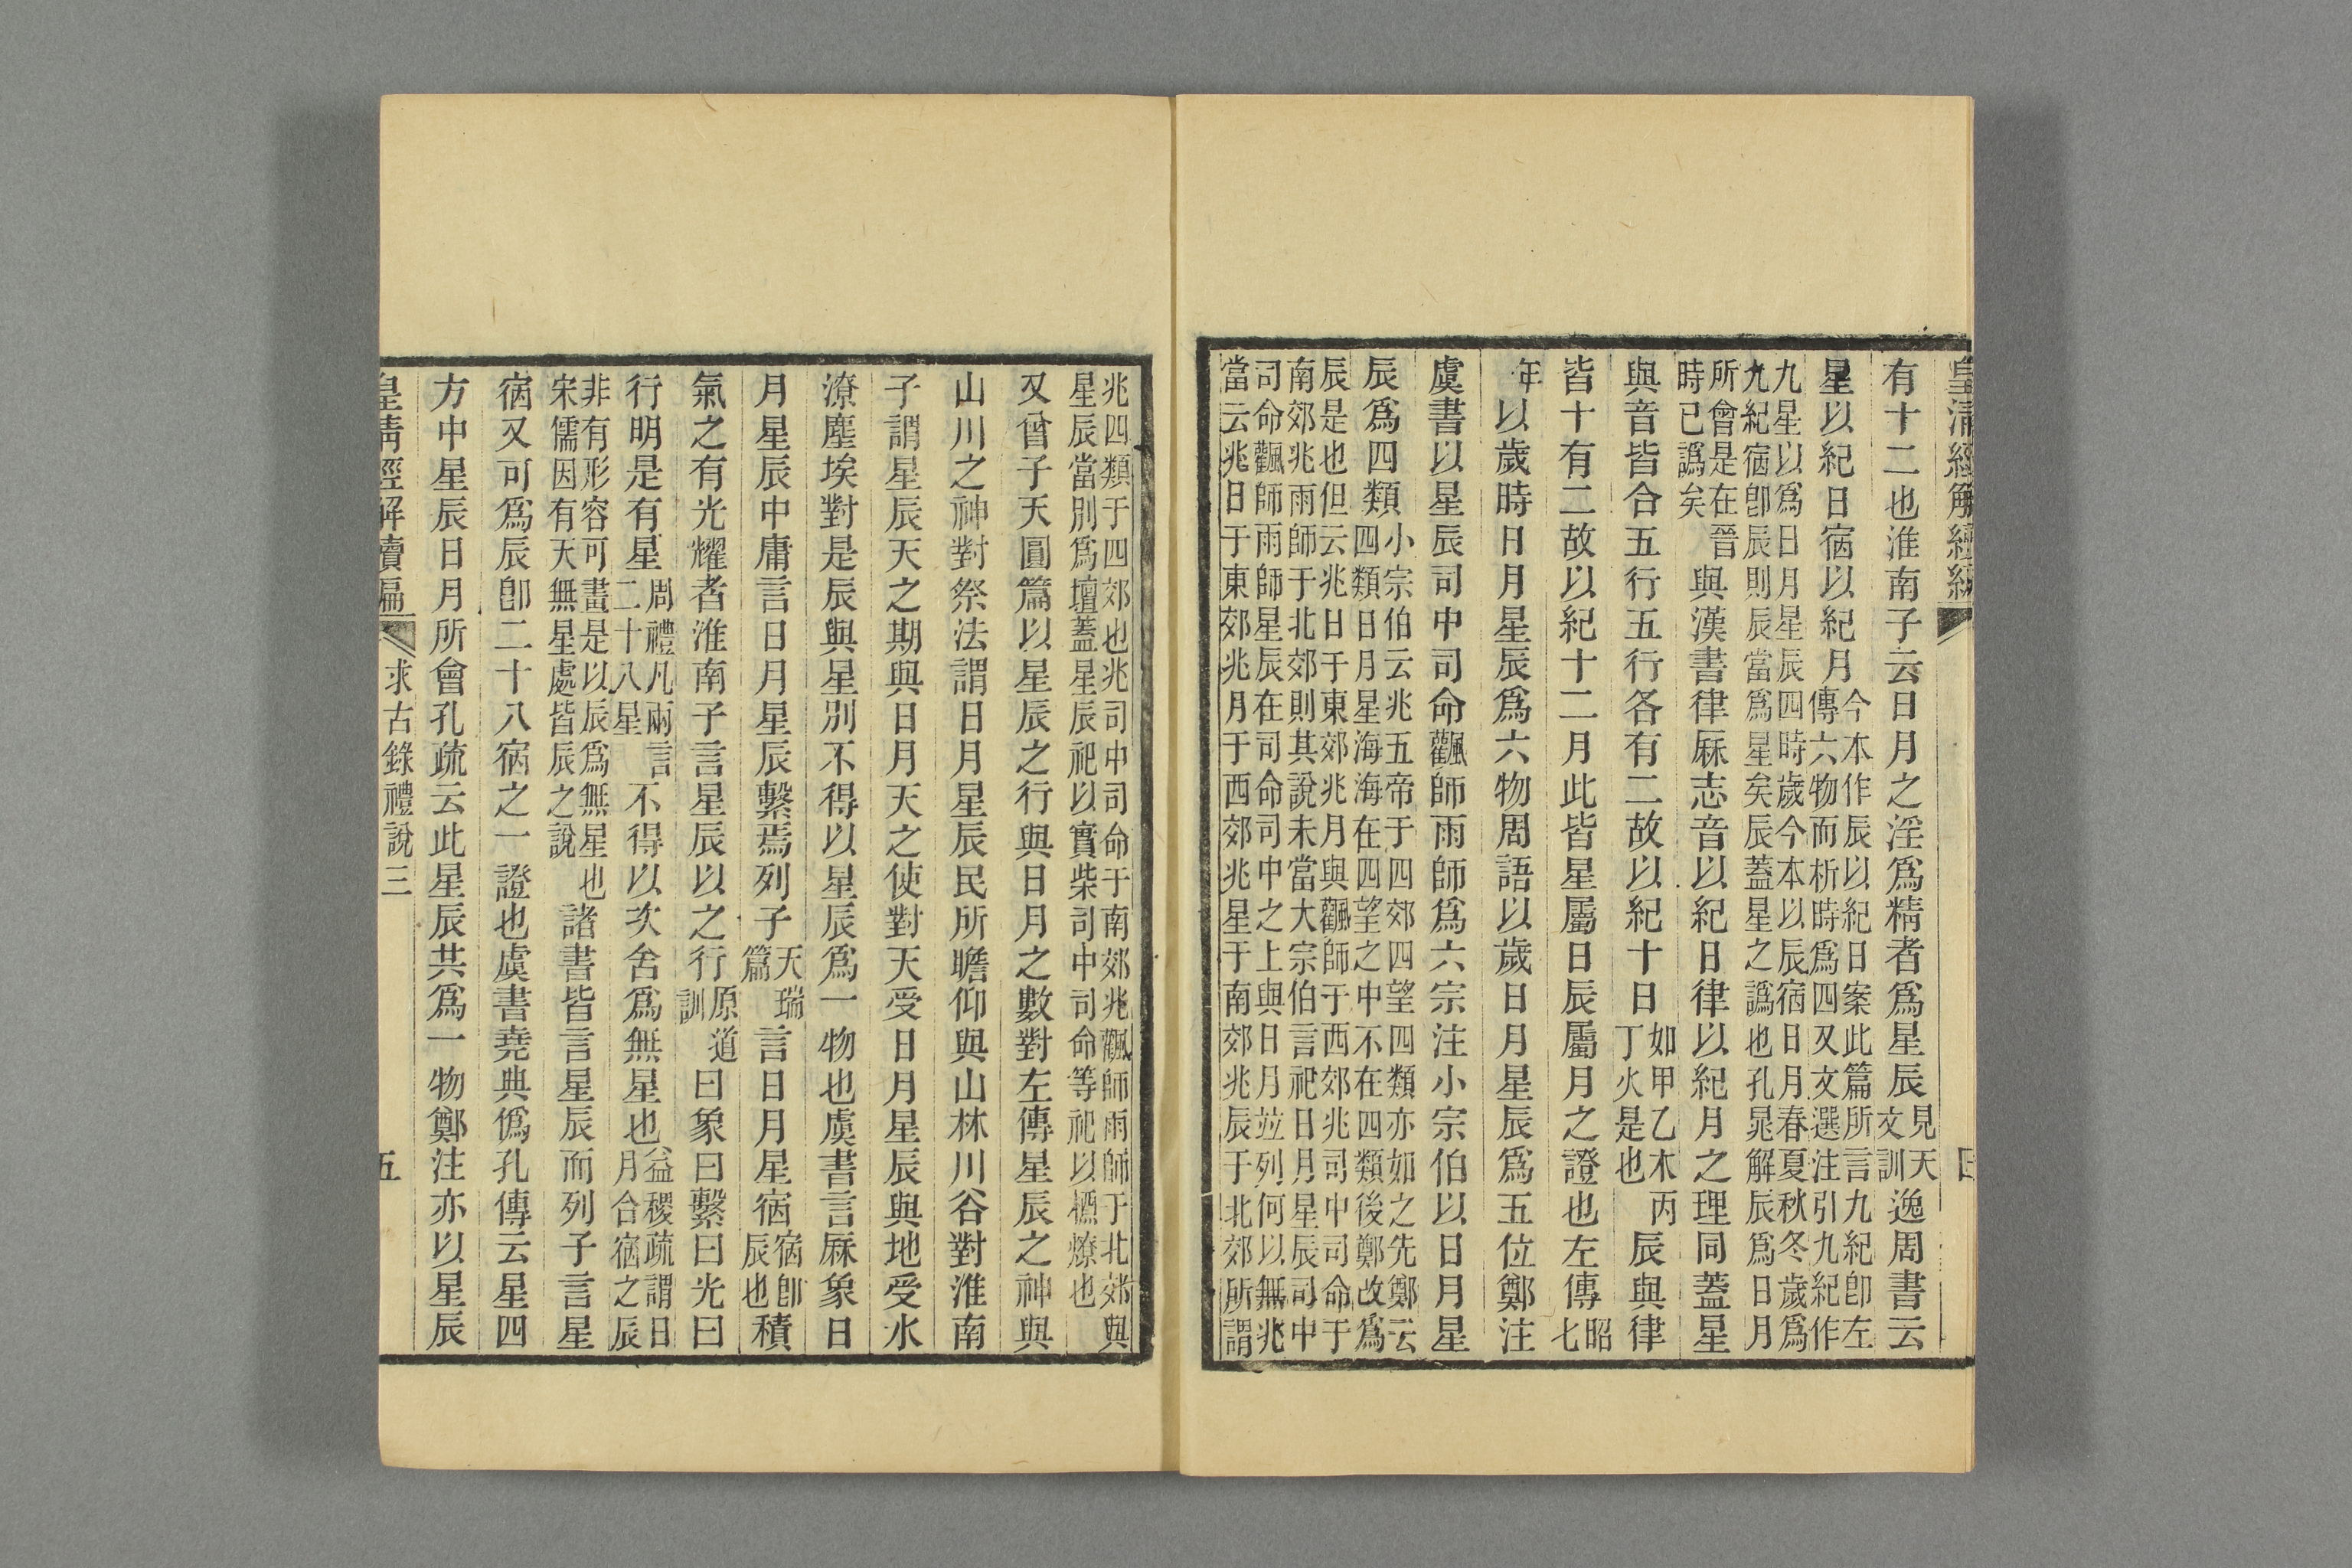 皇清經解續編
有十二也淮南子云日月之淫爲精者爲星辰見天文訓逸周書云
星以紀日宿以紀月今本作辰以紀日案此篇所言九紀卽左傳六物而析時爲四又文選注引九紀作
九星以爲日月星辰四時歲今本以辰宿日月春夏秋冬歲爲九紀宿卽辰則辰當爲星矣辰蓋星之譌也孔晁解辰爲日月
所會是在晉時已譌矣與漢書律厤志音以紀日律以紀月之理同蓋星
與音皆合五行五行各有二故以紀十日如甲乙木丙丁火是也辰與律
皆十有二故以紀十二月此皆星屬日辰屬月之證也左傳昭七
年以歲時日月星辰爲六物周語以歲日月星辰爲五位鄭注
虞書以星辰司中司命飌師雨師爲六宗注小宗伯以日月星
辰爲四類小宗伯云兆五帝于四郊四望四類亦如之先鄭云四類日月星海海在四望之中不在四類後鄭改爲
辰是也但云兆日于東郊兆月與飌師于西郊兆司中司命于南郊兆雨師于北郊則其說未當大宗伯言祀日月星辰司中
司命飌師雨師星辰在司命司中之上與日月竝列何以無兆當云兆日于東郊兆月于西郊兆星于南郊兆辰于北郊所謂
兆四類于四郊也兆司中司命于南郊兆飌師雨師于北郊與星辰當別爲壇蓋星辰祀以實柴司中司命等祀以槱燎也
又曾子天圓篇以星辰之行與日月之數對左傳星辰之神與
山川之神對祭法謂日月星辰民所瞻仰與山林川谷對淮南
子謂星辰天之期與日月天之使對天受日月星辰與地受水
潦塵埃對是辰與星別不得以星辰爲一物也虞書言厤象日
月星辰中庸言日月星辰繫焉列子天瑞篇言日月星宿宿卽辰也積
氣之有光耀者淮南子言星辰以之行原道訓曰象曰繫曰光曰
行明是有星周禮凡兩言二十八星不得以次舍爲無星也益稷疏謂日月合宿之辰
非有形容可畫是以辰爲無星也宋儒因有天無星處皆辰之說諸書皆言星辰而列子言星
宿又可爲辰卽二十八宿之一證也虞書堯典僞孔傳云星四
方中星辰日月所會孔疏云此星辰共爲一物鄭注亦以星辰
皇清經解續編 求古錄禮說三 五